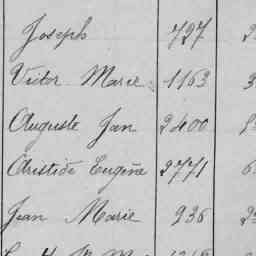 Joseph 797
Victor Marie 1163 3
Auguste Jan 2400
Aristide Eugène 2771 6
Jean Marie 936 2